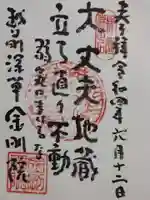 奉拝 令和四年六月十二日
大丈夫地蔵
立ち直り不動
越前深草 金剛院